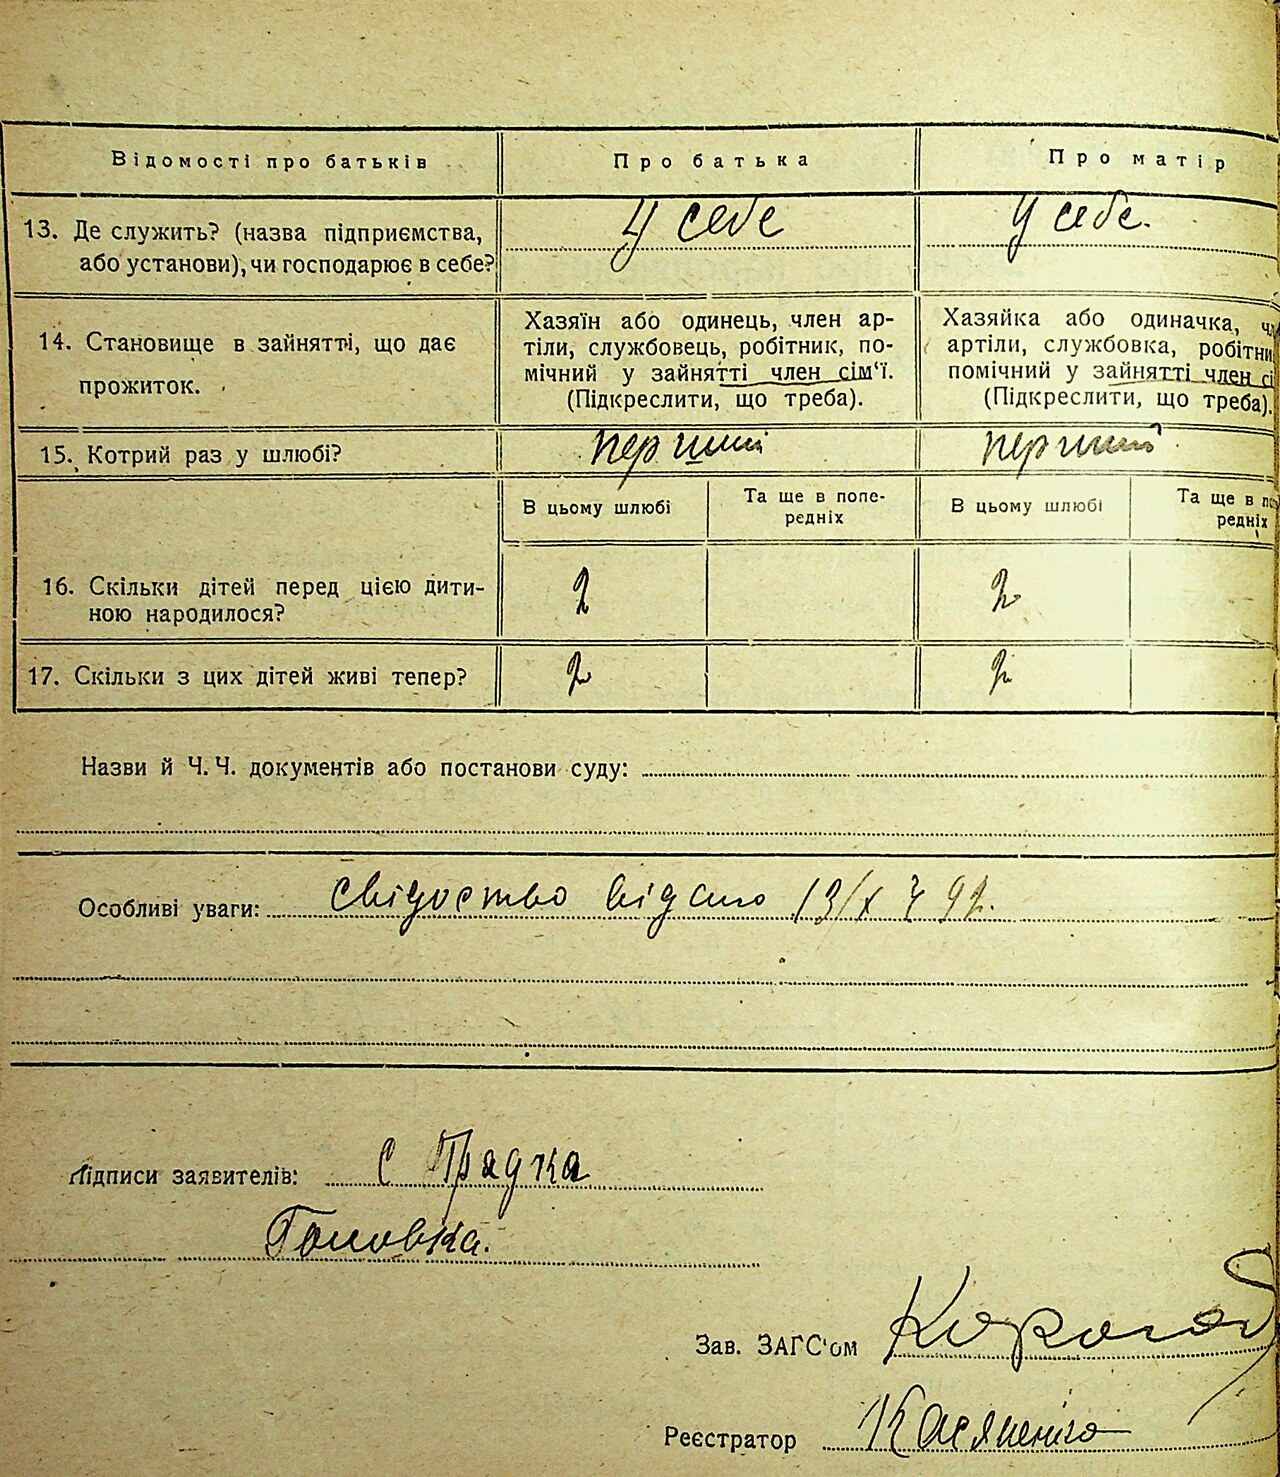 Відомості про батьків Про батька Про матір
13. Де служить? (назва підприємства, у себе у себе.
або установи), чи господарює в себе?
Хазяїн або одинець, член ар- Хазяйка або одиначка, чл
14. Становище в зайнятті, що дає тіли, службовець, робітник, по- артіли, службовка, робітни
прожиток. мічний у зайнятті член сім'ї. помічний у зайнятті член сі
(Підкреслити, що треба). (Підкреслити, що треба).
15. Котрий раз у шлюбі? перший перший
В цьому шлюбі Та ще в попе- В цьому шлюбі Та ще в по
редніх редніх
16. Скільки дітей перед цією дити- 2 2
ною народилося?
17. Скільки з цих дітей живі тепер? 2 2
Назви й Ч. Ч. документів або постанови суду:
Особливі уваги: свідоство видано 13/X
Підписи заявителів: С
Головка.
Зав. ЗАГС'ом
Реєстратор Касяненко